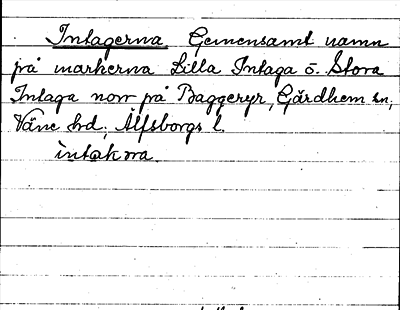 Intagerna Gemensamt namn
på markerna Lilla Intaga o. Stora
Intaga norr på Baggeryr, Gärdhem sn,
Väne hd, Älfsborgs l.